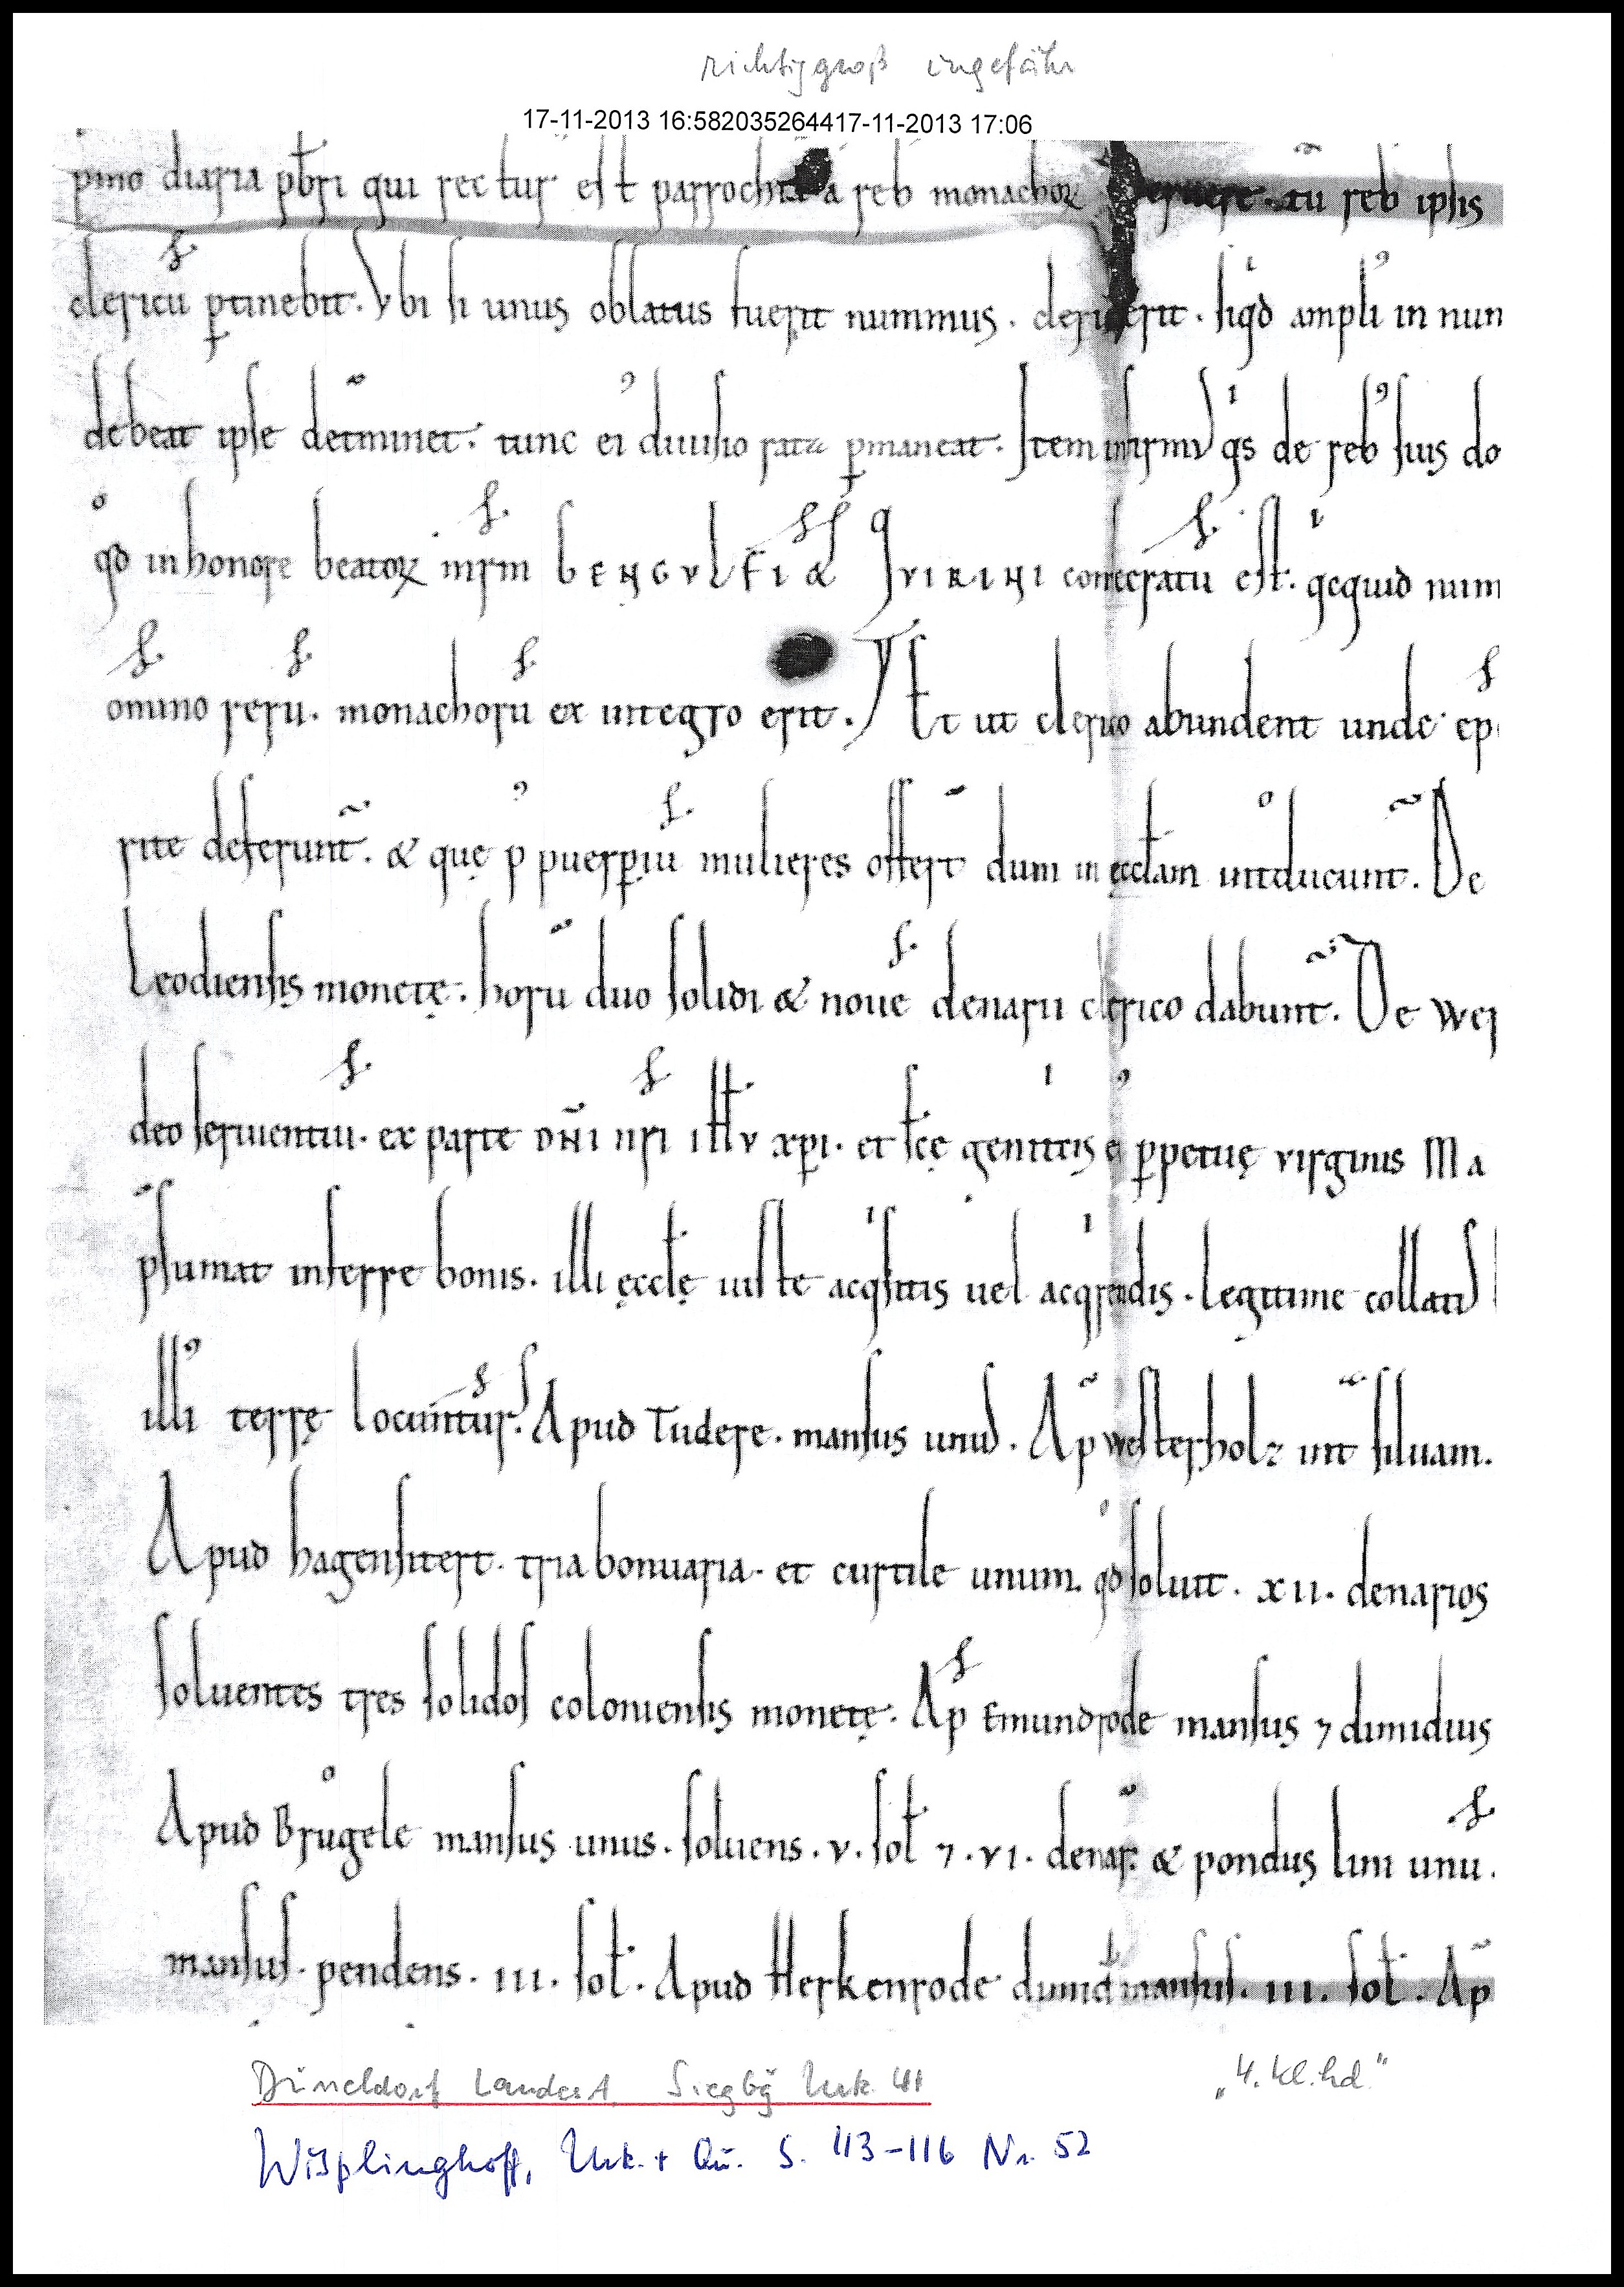 richtiggroß ungefähr
17-11-2013 16:582035264417-11-2013 17:06
pino diaria pb̄ri qui recturꝰ est parrochia a reb monachoꝝ seruire. tū reb ipsis
clericū ꝑtinebit. Vbi si unus oblatus fuerit nummus. cleri erit. siqͥd ampliꝰ in nun
debeat ipse det̄minet. tunc ei diuisio rata ꝑmaneat. Item infirmꝰ qͥs de rebꝰ suis do
qͦd in honore beatoꝝ mr̄m bENGVLFI & QVIRINI consecratū est. qͥcquid num
om̄ino rerū. monachorū ex integro erit. Et ut clerico abundent unde ep
rite deferunt̄. & quę p puerꝑiū mulieres offert̄ dum in ęccl̄am int̄ducunt̄. De
Leodiensis monetę. horū duo solidi & noūe denarii clerico dabunt̄. De wei
deo seruientiū. ex parte DN̄I nr̄i ih̄v xp̄i. et sc̄ę genitͥcis eꝰ ꝑpetuę virginis Ma
p̄sumat inferre bonis. illi ęccl̄ę iuste acqͥsitis uel acqͥrendis. Legitime collatis
illiꝰ terrę locuntur. Apud Tudere. mansus unus. Ap̄ westerholz int̄ siluam.
Apud hagensitert. tria bonuaria. et curtile unum. qͦd soluit. xii. denarios
soluentes tres solidos coloniensis monetę. Ap̄ Emundrode mansus ⁊ dimidius
Apud Brůgele mansus unus. soluens. v. sol̄ ⁊. vi. denar̄. & pondus lini unū.
mansus. pendens. iii. sol̄. Apud Herkenrode dimid̄ mansus. iii. sol̄. Ap̄
Düsseldorf Landes A. Siegbg Urk. 41
„4. kl. hd."
Wisplinghoff, Urk. + Qu. S. 113-116 Nr. 52